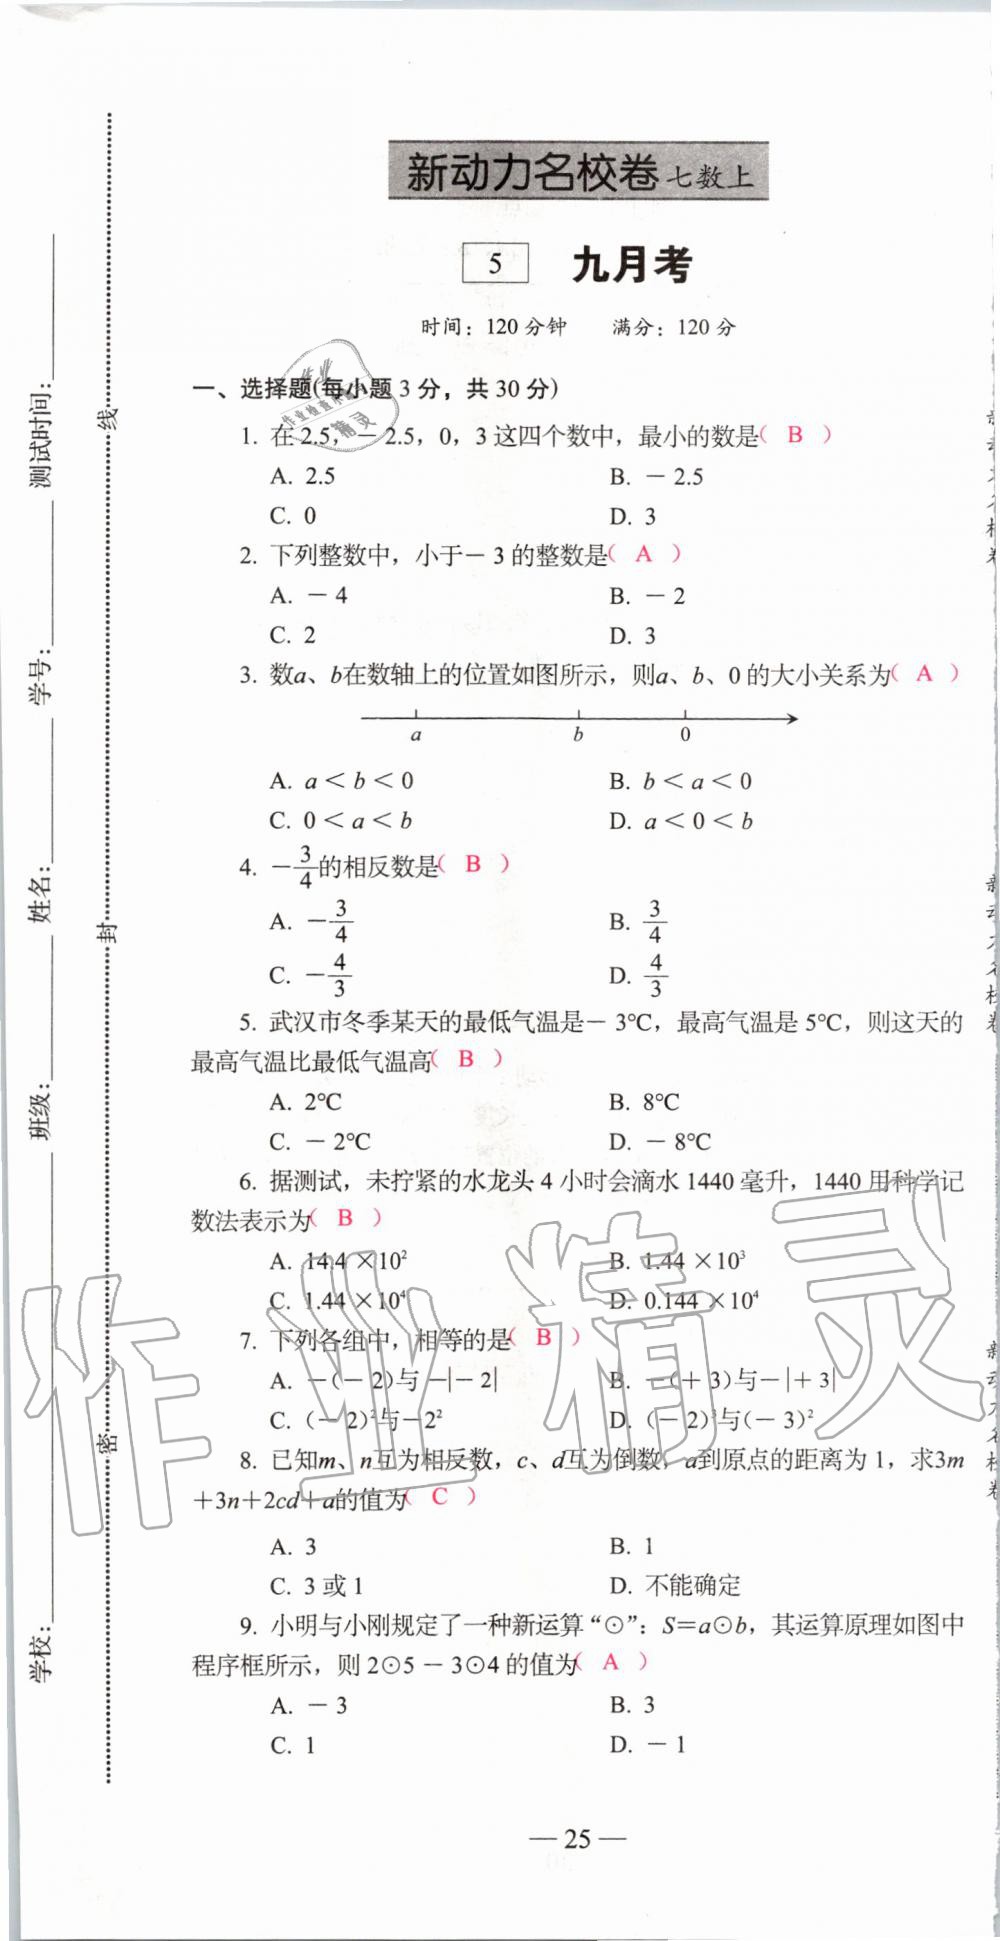 新动力名校卷 七数上
5 九月考
时间：120分钟 满分：120分
一、选择题(每小题3分，共30分)
1. 在2.5，－2.5，0，3这四个数中，最小的数是( B )
A. 2.5 B. －2.5
C. 0 D. 3
2. 下列整数中，小于－3的整数是( A )
A. －4 B. －2
C. 2 D. 3
3. 数a、b在数轴上的位置如图所示，则a、b、0的大小关系为( A )
a b 0
A. a＜b＜0 B. b＜a＜0
C. 0＜a＜b D. a＜0＜b
4. －3/4的相反数是( B )
A. －3/4 B. 3/4
C. －4/3 D. 4/3
5. 武汉市冬季某天的最低气温是－3℃，最高气温是5℃，则这天的
最高气温比最低气温高( B )
A. 2℃ B. 8℃
C. －2℃ D. －8℃
6. 据测试，未拧紧的水龙头4小时会滴水1440毫升，1440用科学记
数法表示为( B )
A. 14.4×10² B. 1.44×10³
C. 1.44×10⁴ D. 0.144×10⁴
7. 下列各组中，相等的是( B )
A. －(－2)与－|－2| B. －(＋3)与－|＋3|
C. (－2)²与－2² D. (－2)²与(－3)²
8. 已知m、n互为相反数，c、d互为倒数，a到原点的距离为1，求3m
+3n+2cd+a的值为( C )
A. 3 B. 1
C. 3或1 D. 不能确定
9. 小明与小刚规定了一种新运算“⊙”：S=a⊙b，其运算原理如图中
程序框所示，则2⊙5－3⊙4的值为( A )
A. －3 B. 3
C. 1 D. －1
— 25 —
学校： 班级： 姓名： 学号： 测试时间：
密 封 线
作业精灵
作业检查小
精灵